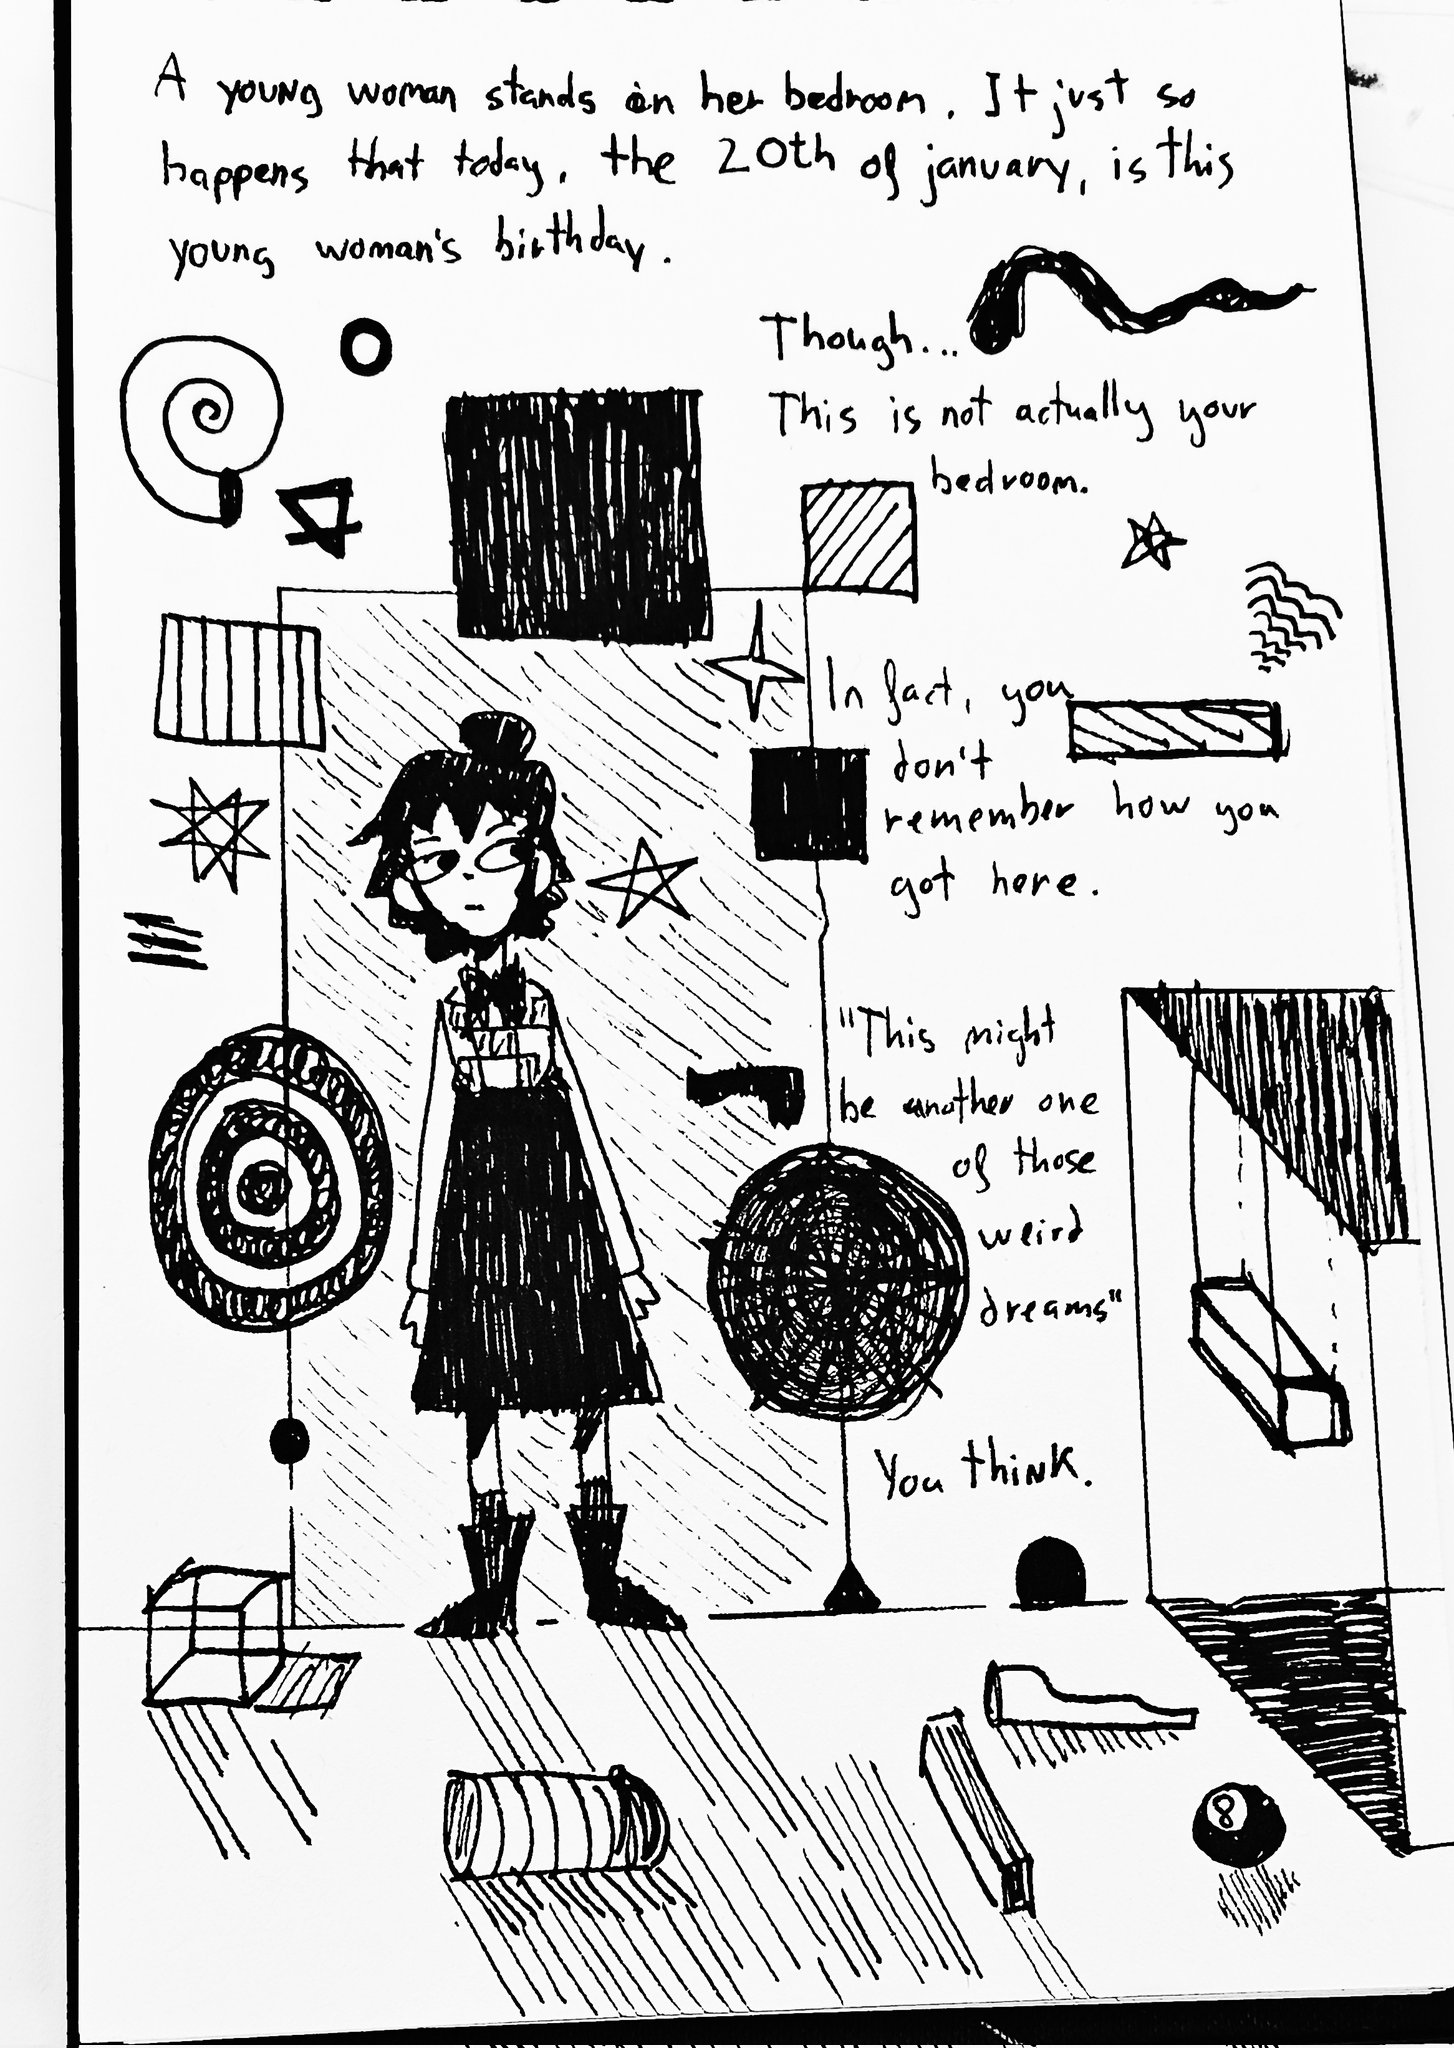 A young woman stands in her bedroom. It just so
happens that today, the 20th of january, is this
young woman's birthday.
Though...
This is not actually your
bedroom.
In fact, you
don't
remember how you
got here.
"This might
be another one
of those
weird
dreams"
You think.
8